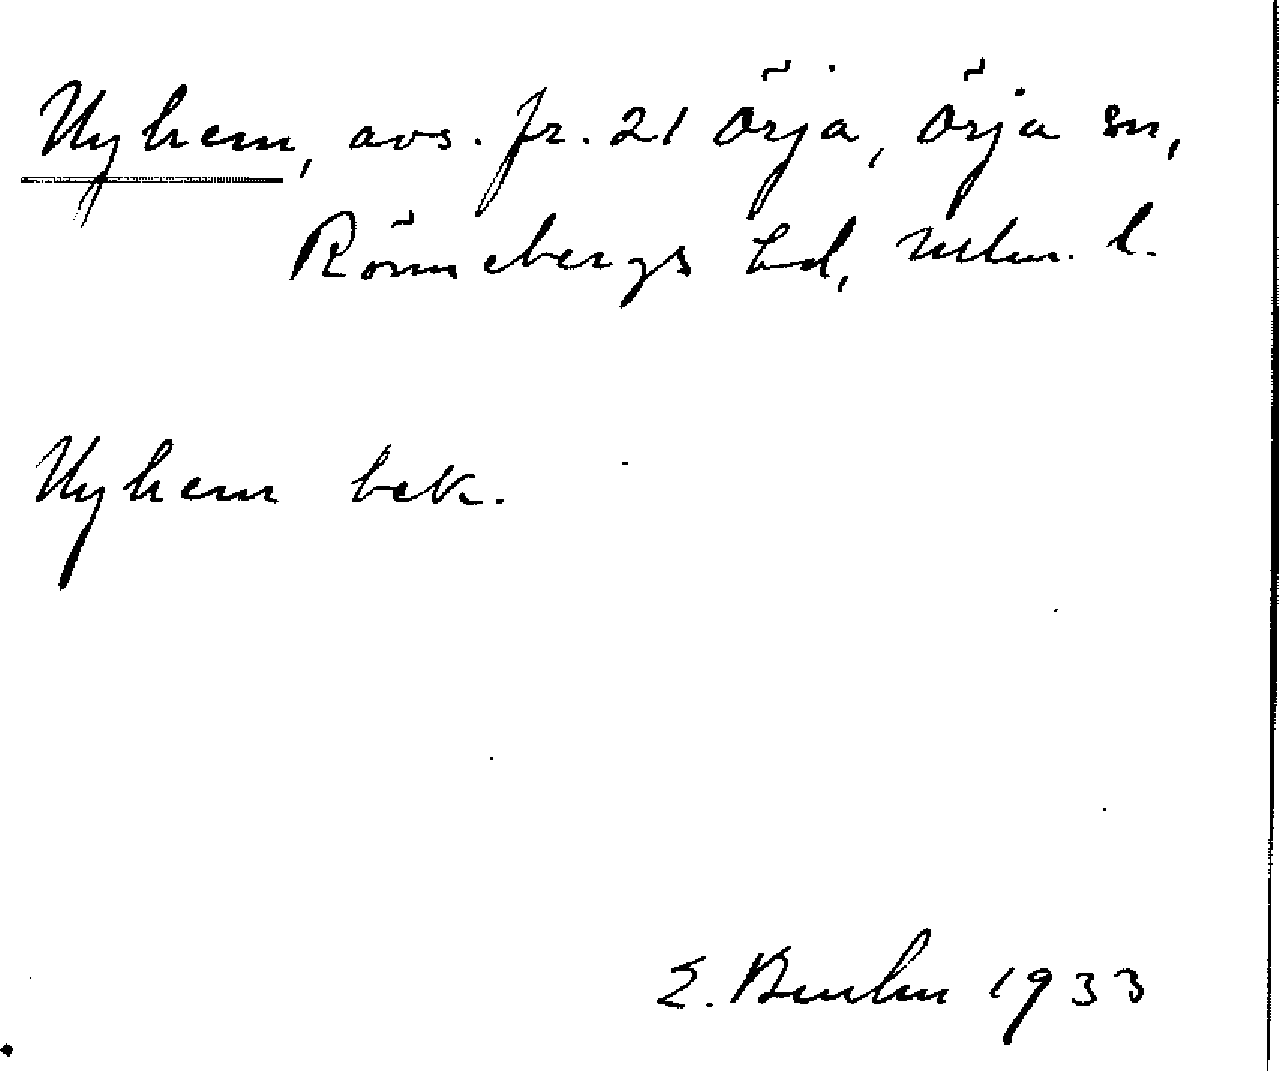 Nyhem, avs. fr. 21 Örja, Örja sn,
Rönnebergs hd, Mlm. l.
Nyhem bek.
E. 1933